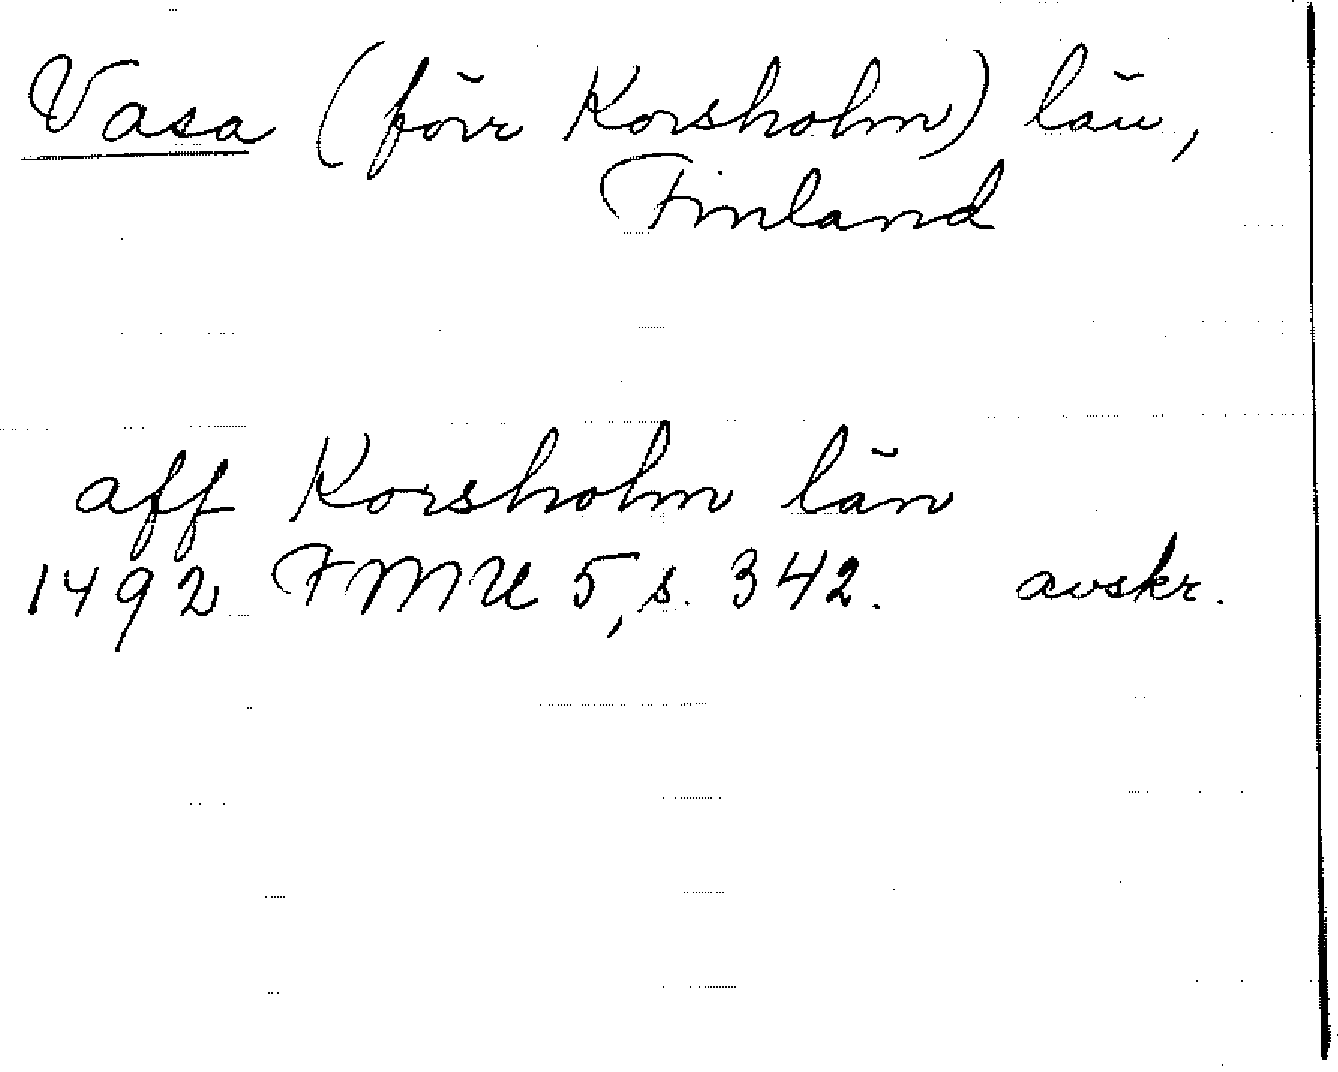 Vasa (förr Korsholm) län,
Finland
aff Korsholm län
1492 FMU 5, s. 342. avskr.